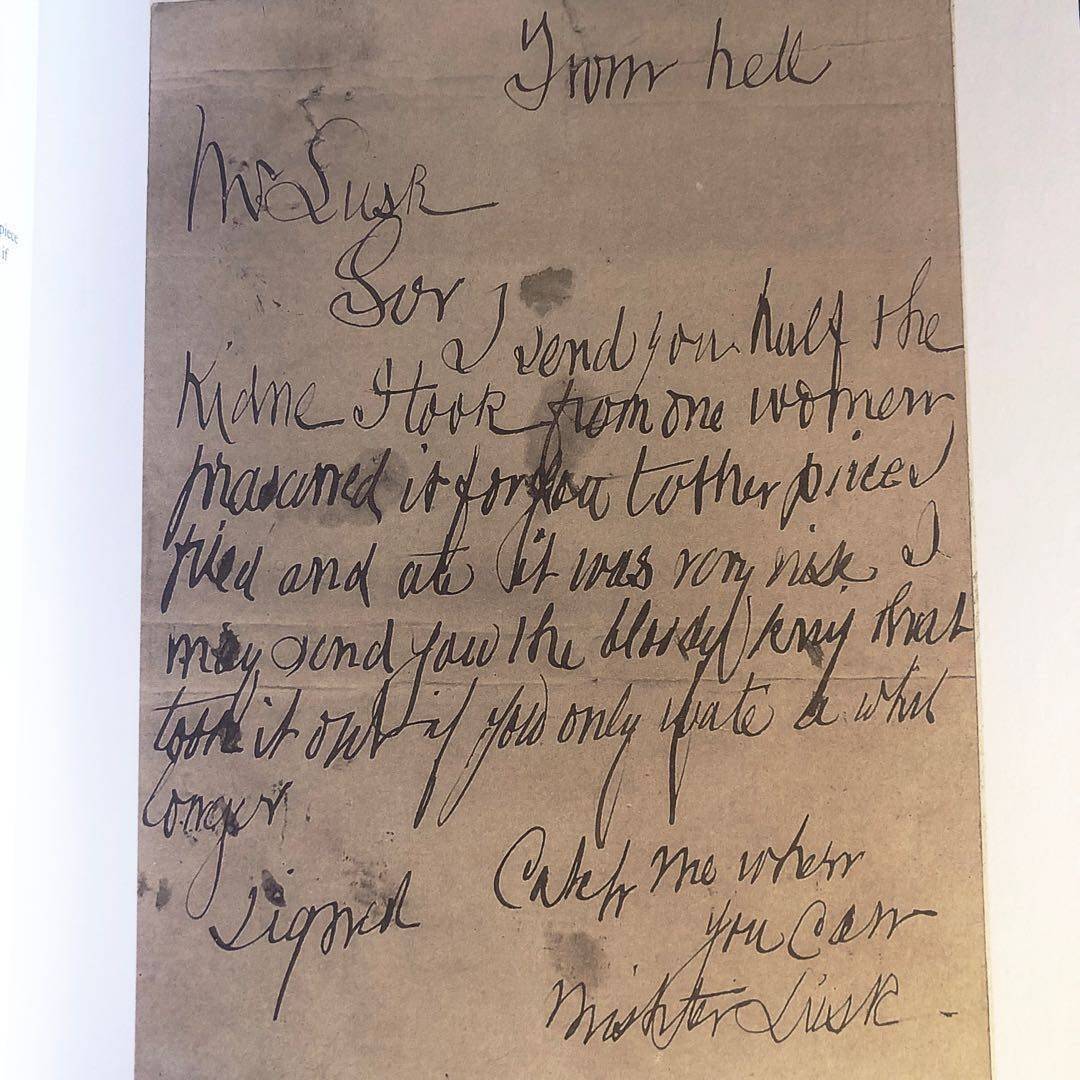 From hell
Mr Lusk
Sor
I send you half the
Kidne I took from one women
prasarved it for you tother piece I
fried and ate it was very nise I
may send you the bloody knif that
took it out if you only wate a whil
longer
Signed Catch me when
you Can
Mishter Lusk -
piece
if